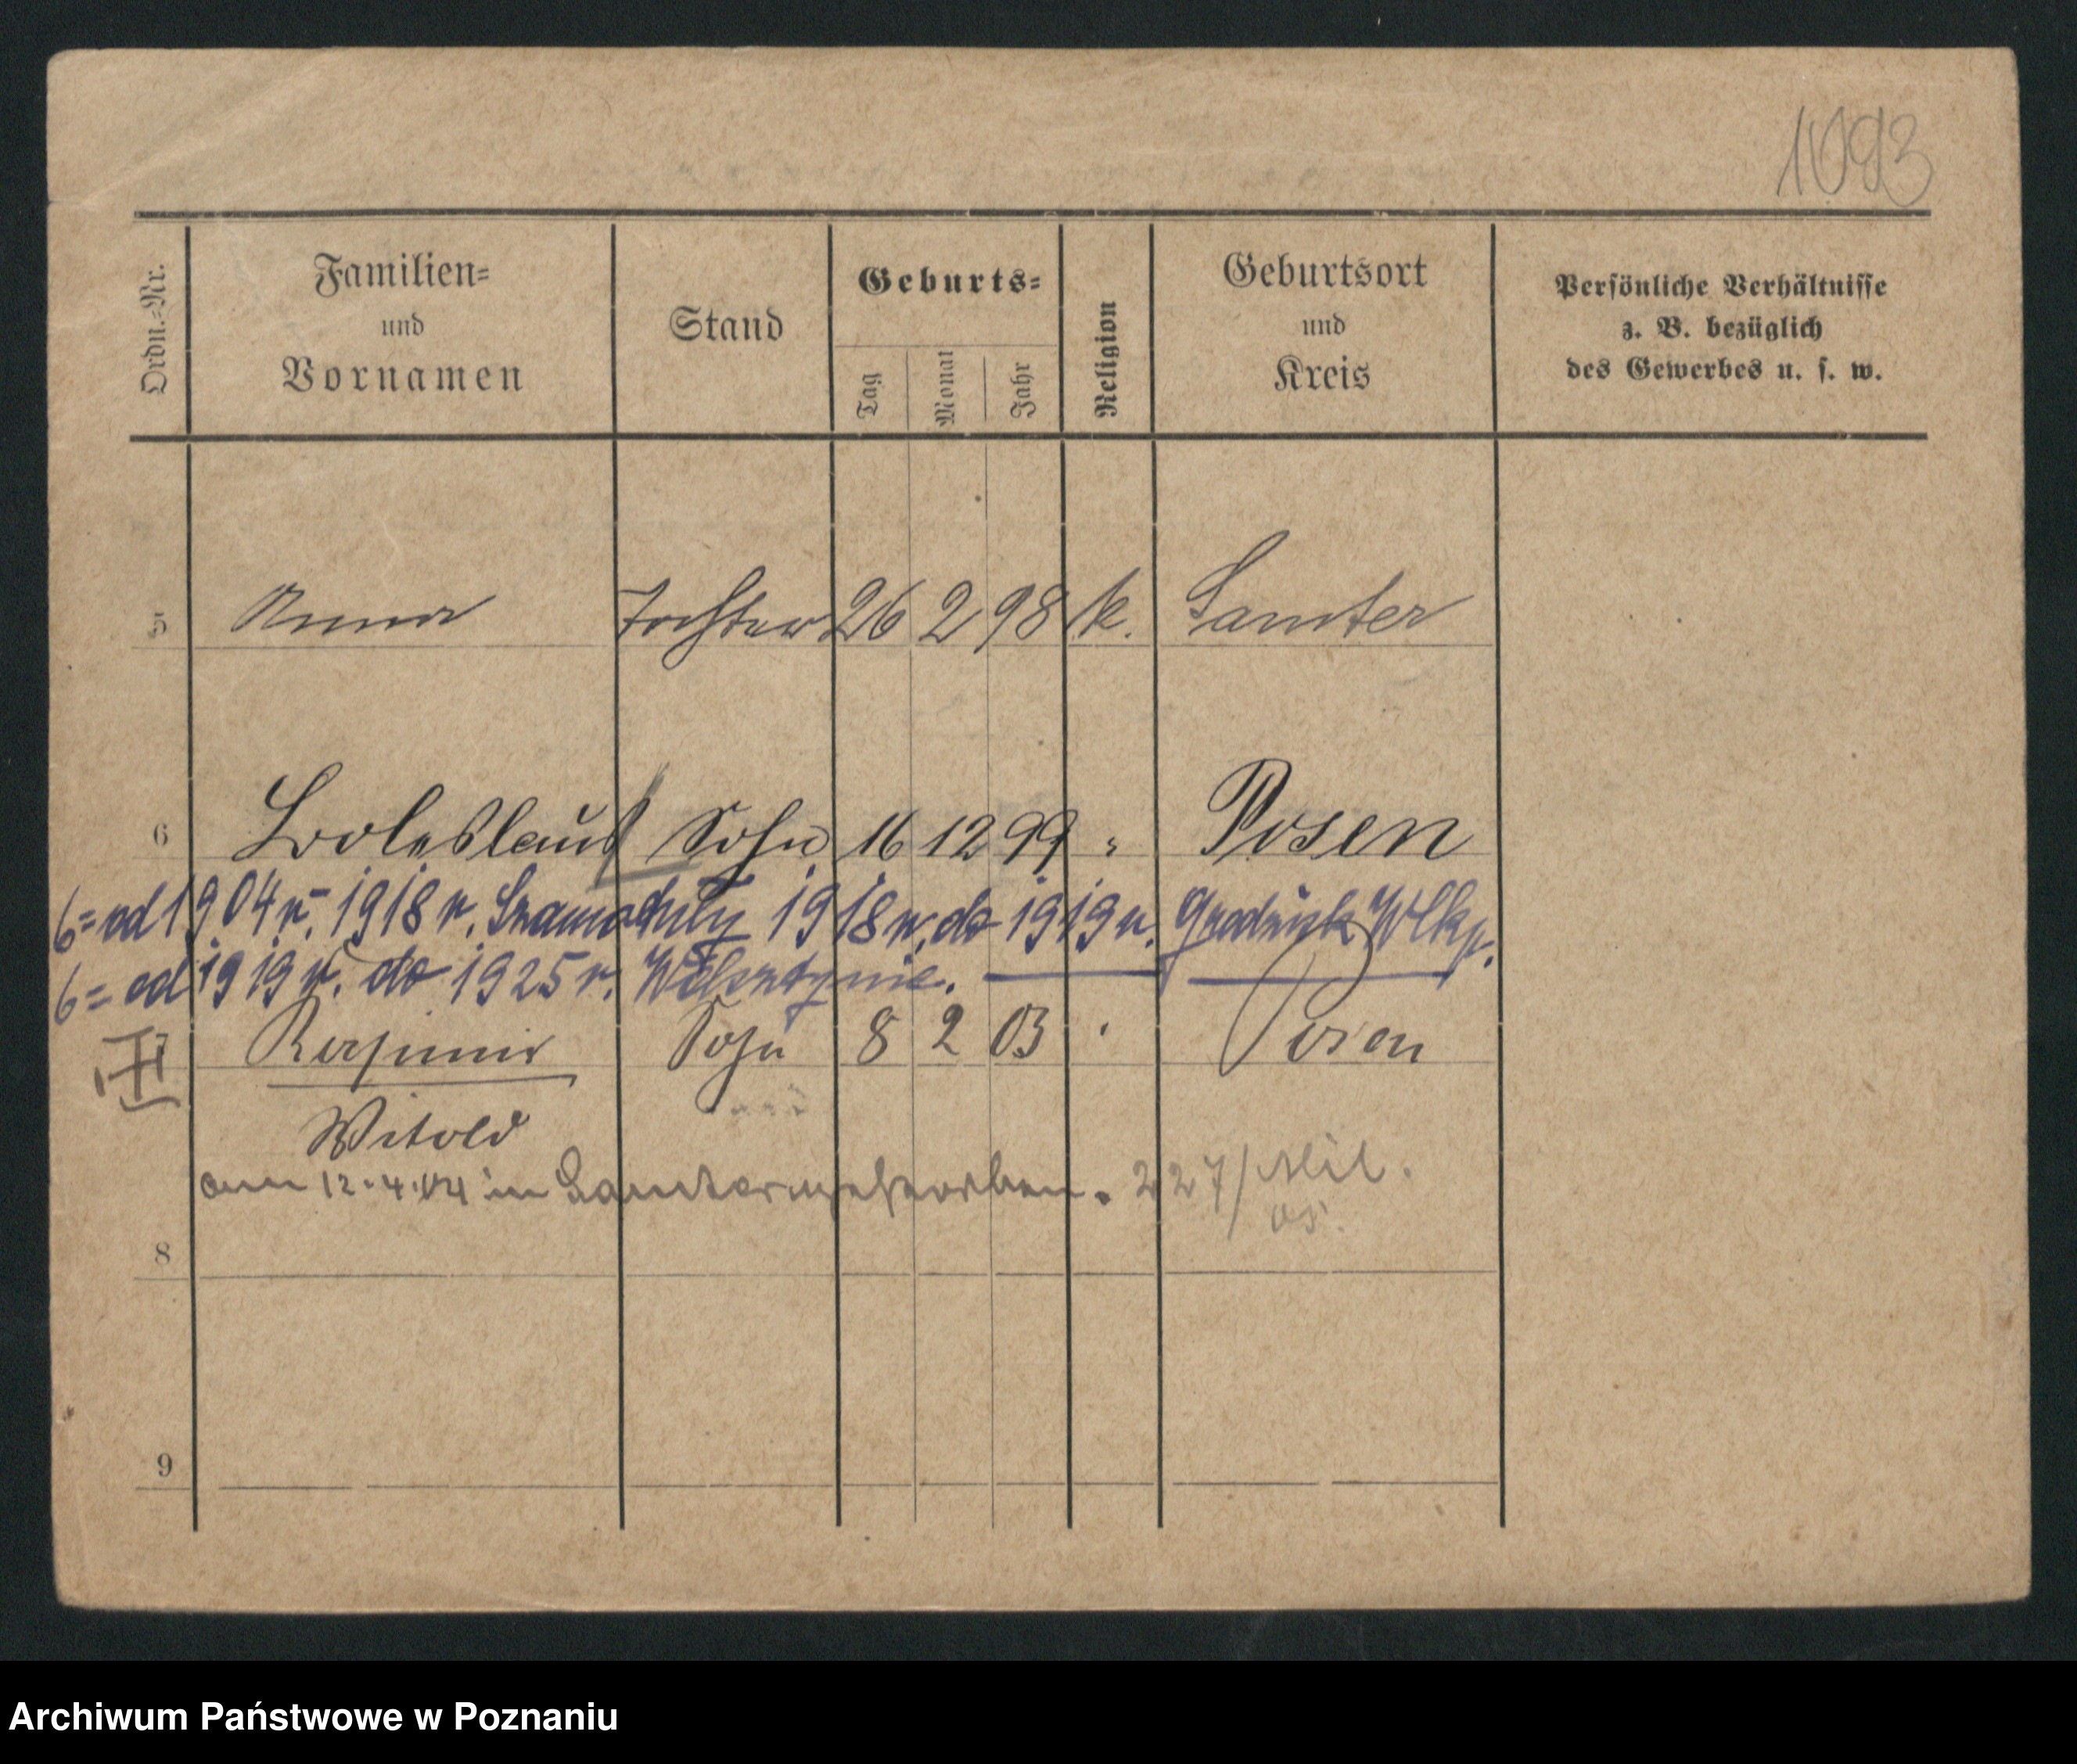 1093
Ordn.-Nr.
Familien-
und
Vornamen
Stand
Geburts-
Tag
Monat
Jahr
Religion
Geburtsort
und
Kreis
Persönliche Verhältnisse
z. B. bezüglich
des Gewerbes u. s. w.
5 Anna Tochter 26 2 98 k. Samter
6 Boleslaus Sohn 16 12 99 " Posen
6= od 1904 r. 1918 r. Szamotuły 1918 r. do 1919 r. Grodzisk Wlkp.
6= od 1919 r. do 1925 r.
7 Kasimir Sohn 8 2 03 " Posen
Witold
am 12.4.04 in Samter gestorben. 227/Mil.
05.
8
9
Archiwum Państwowe w Poznaniu